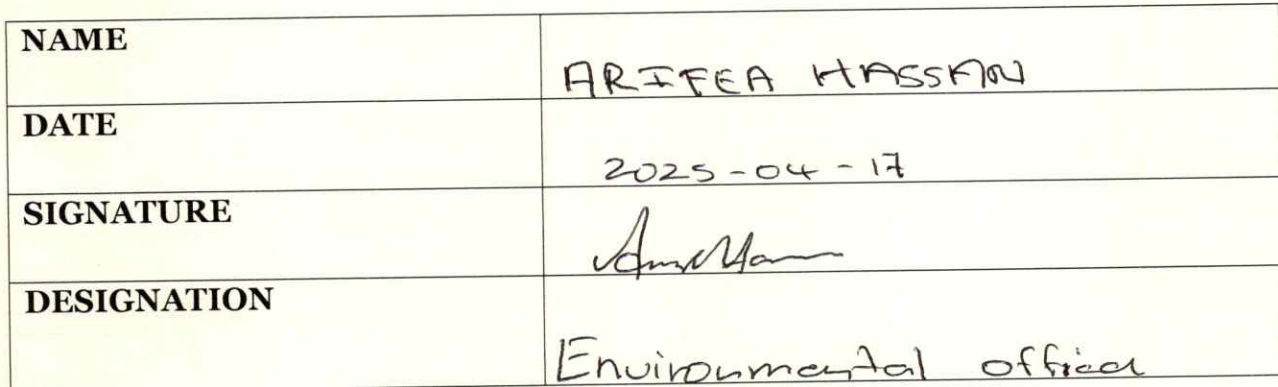 NAME
ARIFEA HASSAN
DATE
2025-04-17
SIGNATURE
DESIGNATION
Environmental officer